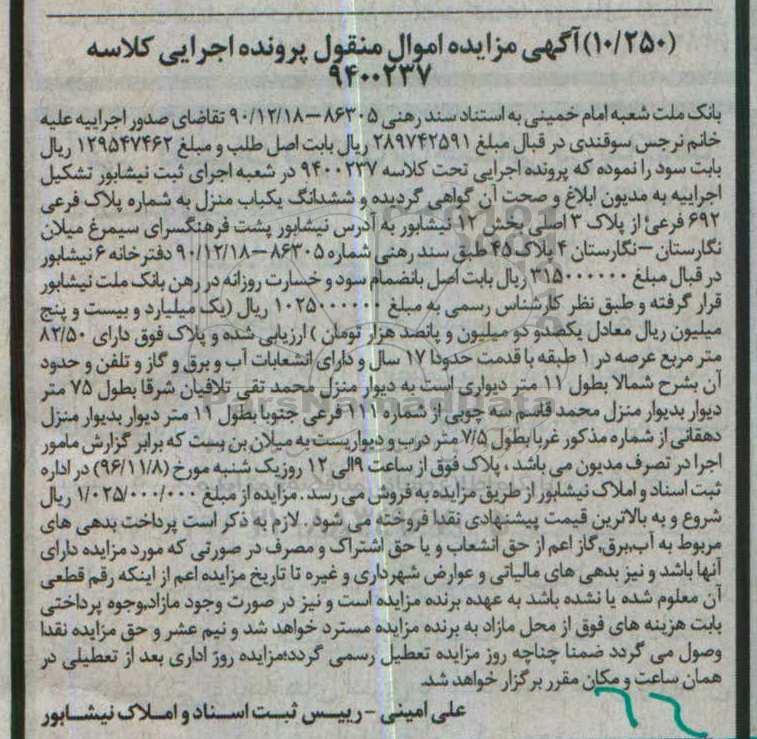 (۱۰/۲۵۰)آگهی مزایده اموال منقول پرونده اجرایی کلاسه
۹۴۰۰۲۳۷
بانک ملت شعبه امام خمینی به استناد سند رهنی ۸۶۳۰۵–۹۰/۱۲/۱۸ تقاضای صدور اجراییه علیه
خانم نرجس سوقندی در قبال مبلغ ۲۸۹۷۴۲۵۹۱ ریال بابت اصل طلب و مبلغ ۱۲۹۵۴۷۴۶۲ ریال
بابت سود را نموده که پرونده اجرایی تحت کلاسه ۹۴۰۰۲۳۷ در شعبه اجرای ثبت نیشابور تشکیل
اجراییه به مدیون ابلاغ و صحت آن گواهی گردیده و ششدانگ یکباب منزل به شماره پلاک فرعی
۶۹۲ فرعی از پلاک ۳ اصلی بخش ۱۲ نیشابور به آدرس نیشابور پشت فرهنگسرای سیمرغ میلان
نگارستان –نگارستان ۴ پلاک ۴۵ طبق سند رهنی شماره ۸۶۳۰۵–۹۰/۱۲/۱۸ دفترخانه ۶ نیشابور
در قبال مبلغ ۳۱۵۰۰۰۰۰۰ ریال بابت اصل بانضمام سود و خسارت روزانه در رهن بانک ملت نیشابور
قرار گرفته و طبق نظر کارشناس رسمی به مبلغ ۱۰۲۵۰۰۰۰۰۰ ریال (یک میلیارد و بیست و پنج
میلیون ریال معادل یکصدو دو میلیون و پانصد هزار تومان ) ارزیابی شده و پلاک فوق دارای ۸۲/۵۰
متر مربع عرصه در ۱ طبقه با قدمت حدودا ۱۷ سال و دارای انشعابات آب و برق و گاز و تلفن و حدود
آن بشرح شمالا بطول ۱۱ متر دیواری است به دیوار منزل محمد تقی تلافیان شرقا بطول ۷۵ متر
دیوار بدیوار منزل محمد قاسم سه چوبی از شماره ۱۱۱ فرعی جنوبا بطول ۱۱ متر دیوار بدیوار منزل
دهقانی از شماره مذکور غربا بطول ۷/۵ متر درب و دیواریست به میلان بن بست که برابر گزارش مامور
اجرا در تصرف مدیون می باشد ، پلاک فوق از ساعت ۹الی ۱۲ روز یک شنبه مورخ (۹۶/۱۱/۸) در اداره
ثبت اسناد و املاک نیشابور از طریق مزایده به فروش می رسد . مزایده از مبلغ ۱/۰۲۵/۰۰۰/۰۰۰ ریال
شروع و به بالاترین قیمت پیشنهادی نقدا فروخته می شود . لازم به ذکر است پرداخت بدهی های
مربوط به آب,برق,گاز اعم از حق انشعاب و یا حق اشتراک و مصرف در صورتی که مورد مزایده دارای
آنها باشد و نیز بدهی های مالیاتی و عوارض شهرداری و غیره تا تاریخ مزایده اعم از اینکه رقم قطعی
آن معلوم شده یا نشده باشد به عهده برنده مزایده است و نیز در صورت وجود مازاد,وجوه پرداختی
بابت هزینه های فوق از محل مازاد به برنده مزایده مسترد خواهد شد و نیم عشر و حق مزایده نقدا
وصول می گردد ضمنا چناچه روز مزایده تعطیل رسمی گردد؛مزایده روز اداری بعد از تعطیلی در
همان ساعت و مکان مقرر برگزار خواهد شد.
علی امینی –رییس ثبت اسناد و املاک نیشابور
ParsNamadData